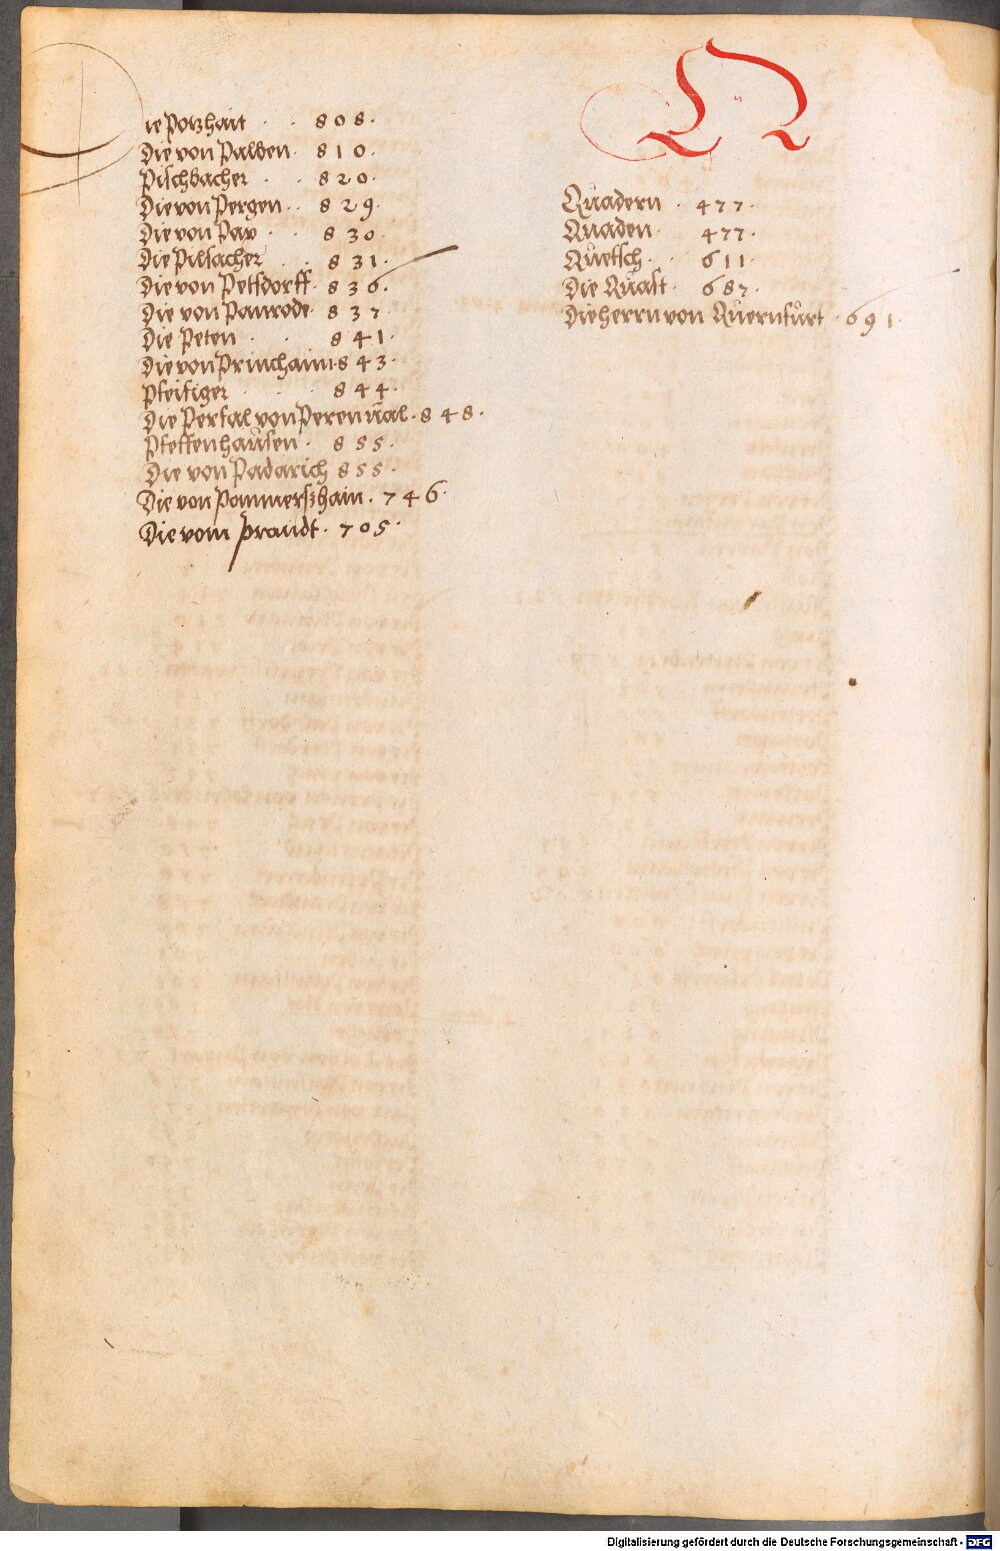 Die Potzhait . . 808.
Die von Palben . 810.
Pischbacher . . 820.
Die von Pergen . . 829.
Die von Pav . . 830.
Die Pilsacher . 831.
Die von Petsdorff . 836.
Die von Panrode . 837.
Die Peten . . 841.
Die von Princhaim . 843.
Pfeifiger . . 844.
Die Perfal von Perenval . 848.
Pfeffenhausen . 855.
Die von Padarich 855.
Die von Pommerszhain . 746.
Die vom Prandt . 705.
Q
Quadern . 477.
Quaden . 477.
Quetsch . . 611.
Die Quast . 687.
Die herrn von Quernfurt . 691.
Digitalisierung gefördert durch die Deutsche Forschungsgemeinschaft - DFG